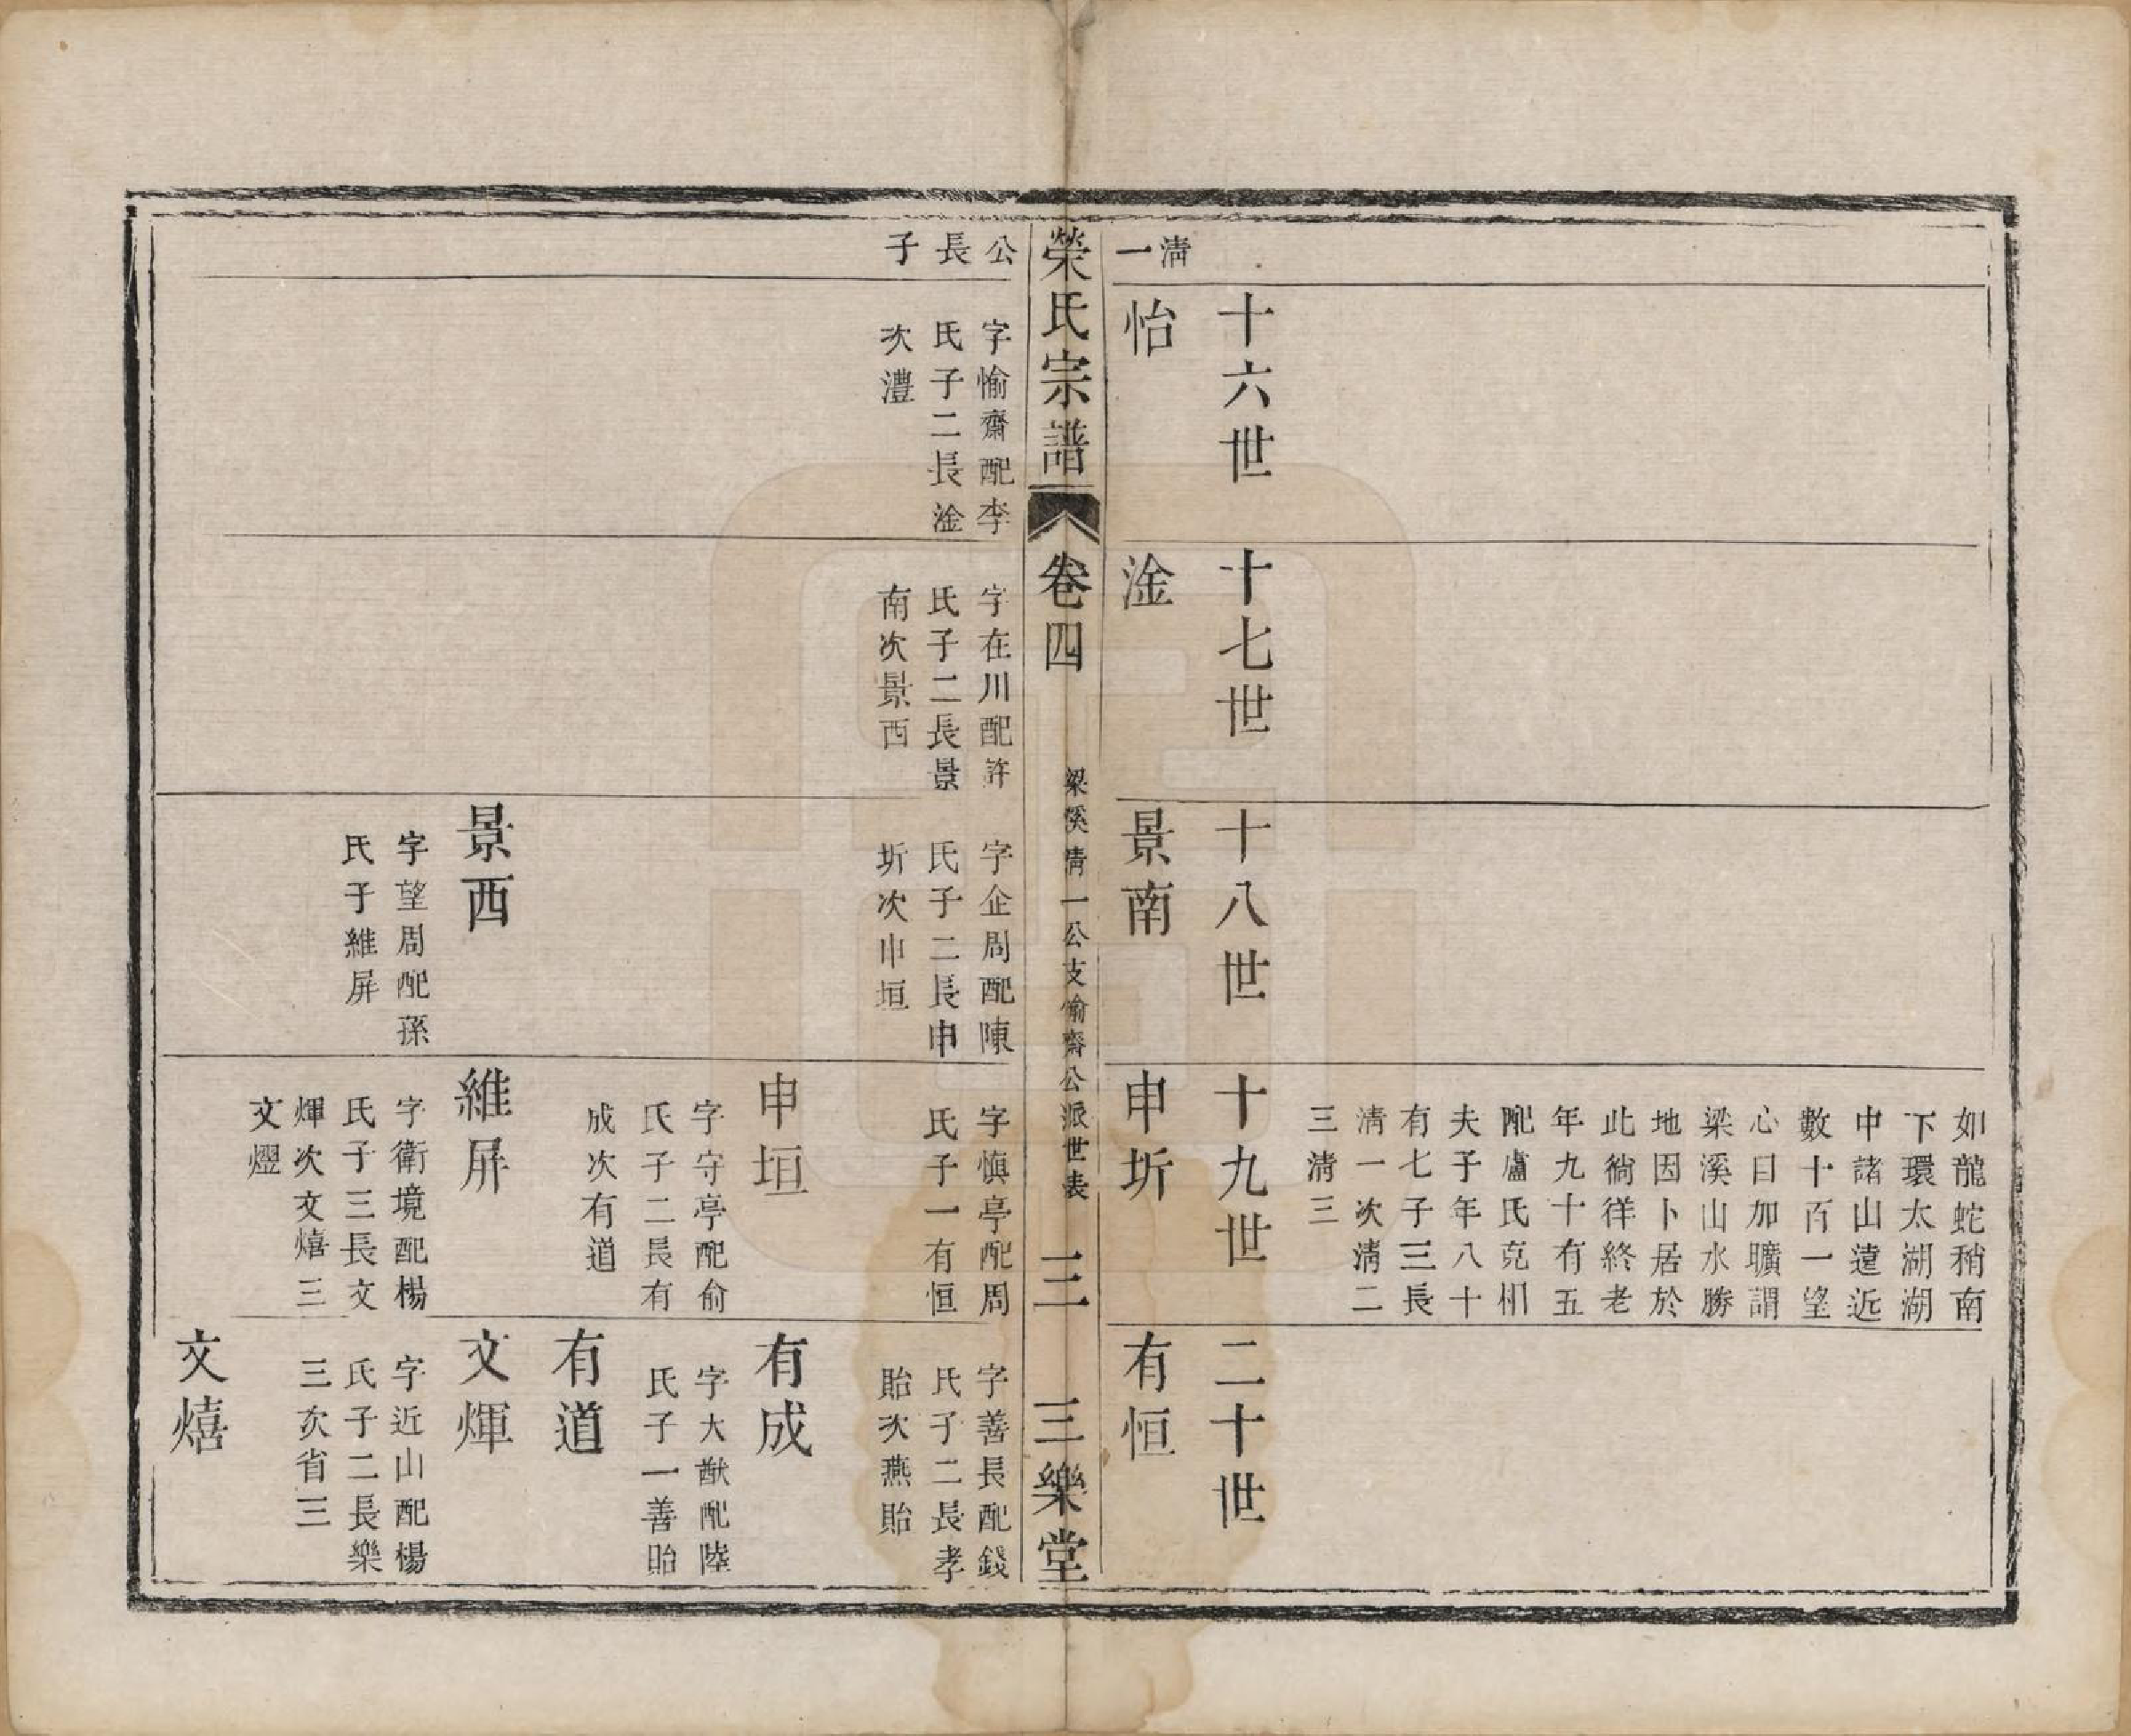 如龍蛇稍南
下環太湖湖
中諸山遠近
數十百一望
心日加曠謂
梁溪山水勝
地因卜居於
此徜徉終老
年九十有五
配盧氏克相
夫子年八十
有七子三長
清一次清二
三清三
十六世
十七世
十八世
十九世
二十世
清一
怡
淦
景南
申圻
有恒
榮氏宗譜
卷四
梁溪清一公支愉齋公派世表
三
三樂堂
公長子
字愉齋配李
氏子二長淦
次澧
字在川配許
氏子二長景
南次景西
字企周配陳
氏子二長申
圻次申垣
字慎亭配周
氏子一有恒
字善長配錢
氏子二長孝
貽次燕貽
申垣
字守亭配俞
氏子二長有
成次有道
有成
字大猷配陸
氏子一善貽
有道
景西
字望周配孫
氏子維屏
維屏
字衛境配楊
氏子三長文
煇次文熺三
文熤
文煇
字近山配楊
氏子二長樂
三次省三
文熺